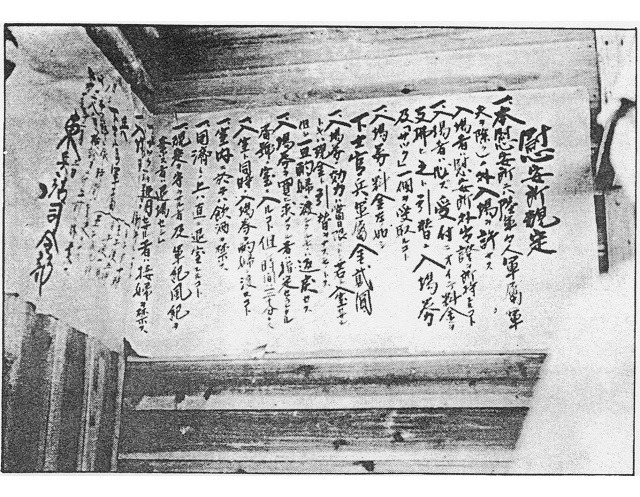 慰安所規定
一、本慰安所ニハ陸軍々人軍属(軍
夫ヲ除ク)ノ外入場ヲ許サス
一、入場者ハ慰安所外出證ヲ所持スルコト
一、入場者ハ必ス受付ニオイテ料金ヲ
支拂ヒ之ト引替ニ入場券
及「サック」一個ヲ受取ルコト
一、入場券ノ料金左ノ如シ
下士官、兵、軍属金貳圓
一、入場券ノ効力ハ當日限リトシ若シ入室セサル
トキハ現金ト引替ヲナスモノトス
但シ一旦酌婦ニ渡シタルモノハ返戻セス
一、入場券ヲ買ヒ求メタル者ハ指定セラレタル
番號ノ室ニ入ルコト但シ時間ハ三十分トス
一、入室ト同時ニ入場券ヲ酌婦ニ渡スコト
一、室内ニ於テハ飲酒ヲ禁ス
一、用済ノ上ハ直ニ退室スルコト
一、規定ヲ守ラサル者及軍紀風紀ヲ
紊ス者ハ退場セシム
一、サックヲ使用セサル者ハ接婦ヲ禁ス
東兵站司令部